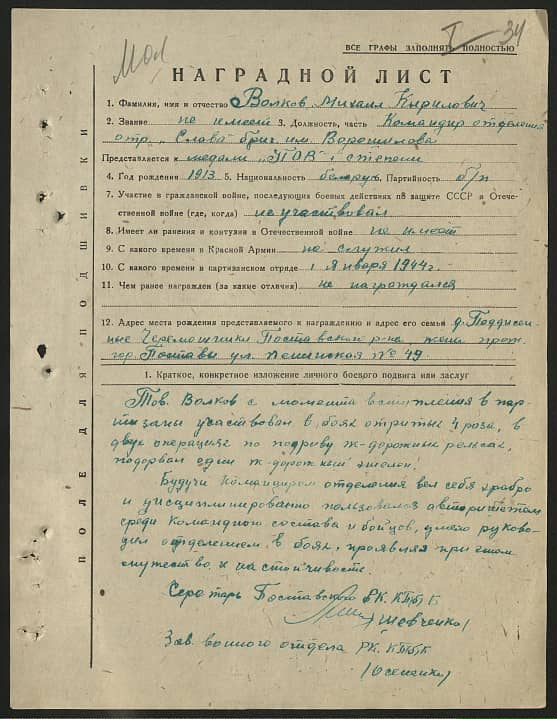 34
ВСЕ ГРАФЫ ЗАПОЛНЯТЬ ПОЛНОСТЬЮ
НАГРАДНОЙ ЛИСТ
1. Фамилия, имя и отчество Волков, Михаил Кирилович
2. Звание не имеет 3. Должность, часть Командир отделения
отр. „Слава" бриг. им. Ворошилова
Представляется к медали „ПОВ" I степени
4. Год рождения 1913 5. Национальность беларус 6. Партийность б/п
7. Участие в гражданской войне, последующих боевых действиях по защите СССР и Отече-
ственной войне (где, когда) не участвовал
8. Имеет ли ранения и контузии в Отечественной войне не имеет
9. С какого времени в Красной Армии не служил
10. С какого времени в партизанском отряде 1 Января 1944г.
11. Чем ранее награжден (за какие отличия) не награждался
12. Адрес места рождения представляемого к награждению и адрес его семьи д.
Черемошники Поставского р-на, жена прож.
гор. Поставы ул. № 49
1. Краткое, конкретное изложение личного боевого подвига или заслуг
Тов. Волков с момента вступления в пар-
тизаны участвовал в боях открытых 4 раза, в
двух операциях по подриву ж-дорожных рельсах,
подорвал один ж-дорожный эшелон.
Будучи Командиром отделения вел себя храбро
и дисциплинированно пользовался авторитетом
среди Командного состава и бойцов, умело руково-
дил отделением в боях, проявляя при этом
мужество и настойчивость.
Секретарь Поставского РК. КПБ
/Шевченко/
Зав. военного отдела РК. КПБ
ПОЛЕ ДЛЯ ПОДШИВКИ